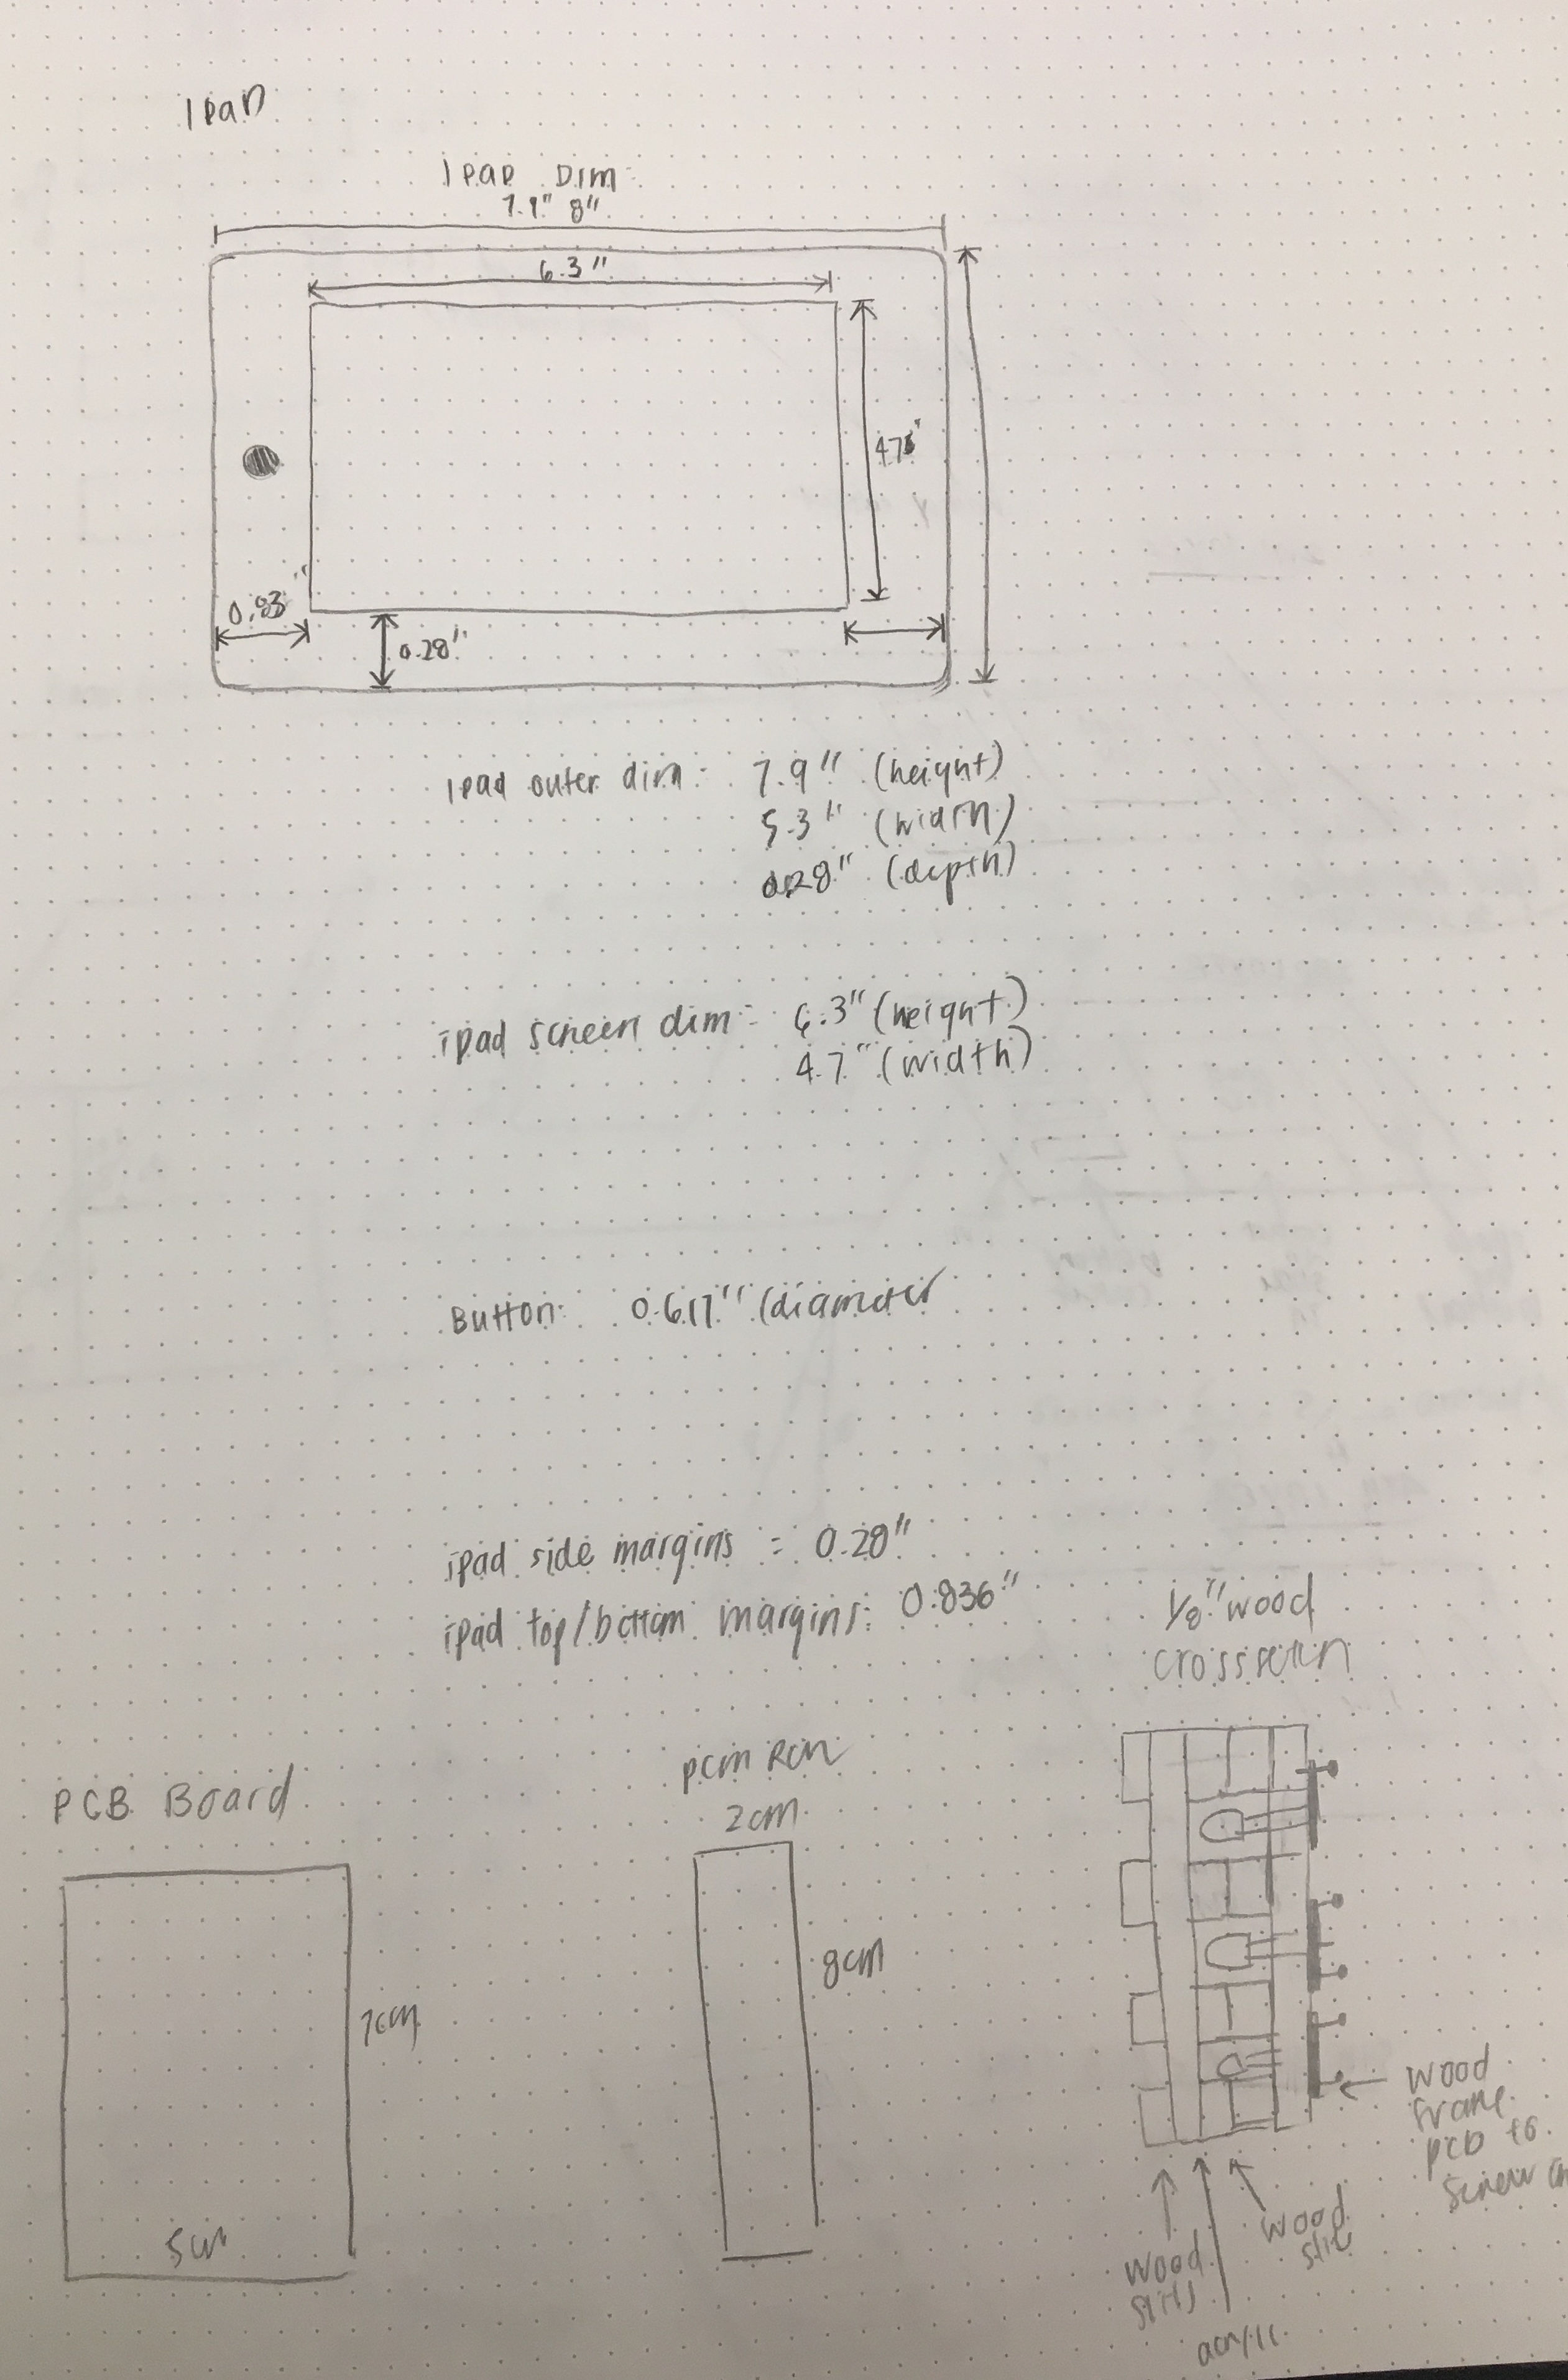 IPAD
IPAD DIM:
7.9" 8"
6.3"
0.83"
0.28"
ipad outer dim: 7.9" (height)
5.3" (width)
0.28" (depth)
ipad screen dim: 6.3" (height)
4.7" (width)
Button: 0.617" (diameter
ipad side margins = 0.28"
ipad top/bottom margins: 0.836"
1/8" wood
PCB Board
2cm
7cm
8cm
5cm
wood
frame
pcb to
screw on
wood
slit
wood
slits
acrylic